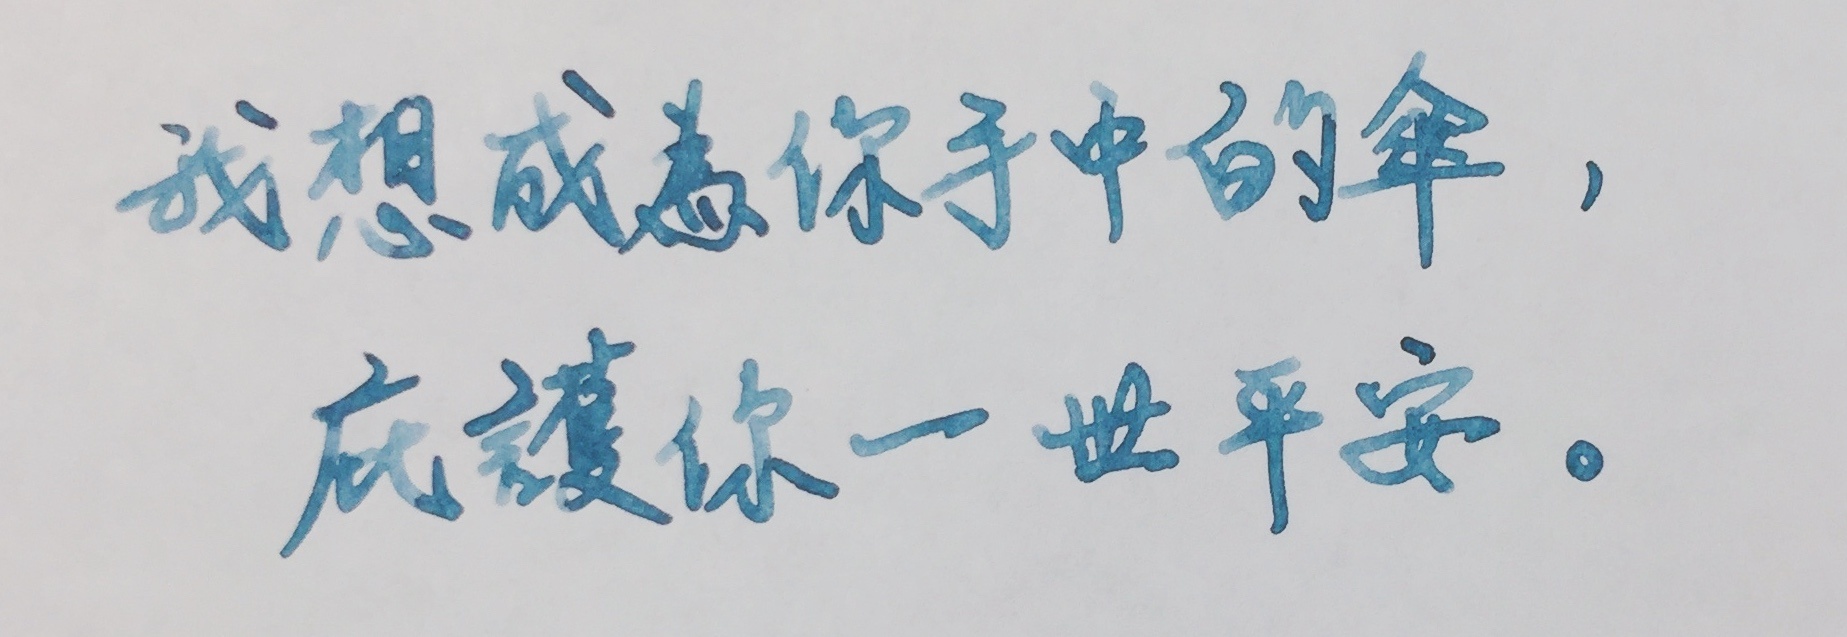 我想成為你手中的傘，
庇護你一世平安。